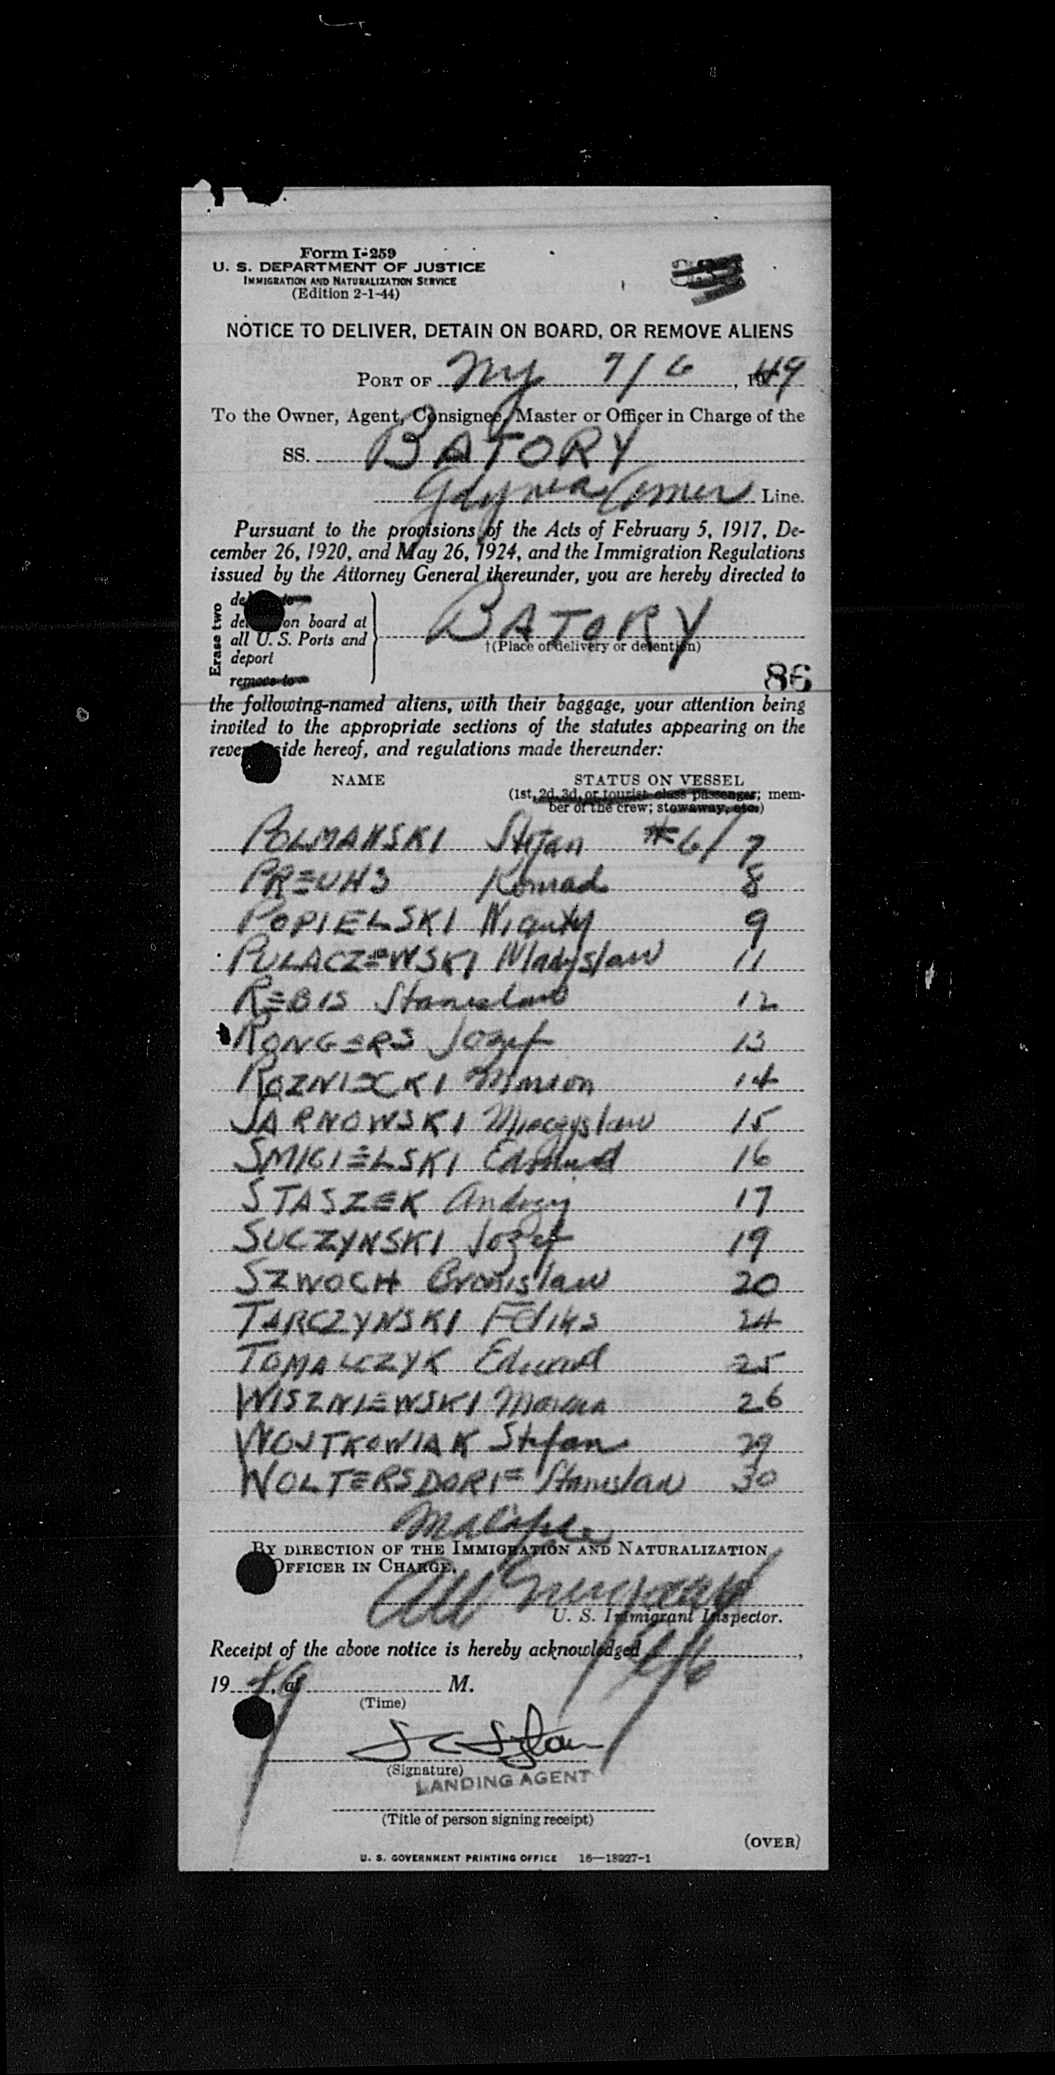 Form I-259
U. S. DEPARTMENT OF JUSTICE
IMMIGRATION AND NATURALIZATION SERVICE
(Edition 2-1-44)
NOTICE TO DELIVER, DETAIN ON BOARD, OR REMOVE ALIENS
PORT OF NY 7/6, 1949
To the Owner, Agent, Consignee, Master or Officer in Charge of the
SS. BATORY
Gdynia Amer Line.
Pursuant to the provisions of the Acts of February 5, 1917, De-
cember 26, 1920, and May 26, 1924, and the Immigration Regulations
issued by the Attorney General thereunder, you are hereby directed to
Erase two
to
on board at
all U. S. Ports and
deport
remove to
BATORY
†(Place of delivery or detention)
86
the following-named aliens, with their baggage, your attention being
invited to the appropriate sections of the statutes appearing on the
side hereof, and regulations made thereunder:
NAME STATUS ON VESSEL
(1st, 2d, 3d, or tourist class passenger; mem-
ber of the crew; stowaway, etc.)
POLMANSKI #6/7
PREUHS Konrad 8
POPIELSKI 9
PULACZEWSKI Wladyslaw 11
REBIS Stanislaw 12
RONGERS Jozef 13
ROZNIECKI Marion 14
JARNOWSKI Mieczyslaw 15
SMIGIELSKI Edmund 16
STASZEK Andrzej 17
SUCZYNSKI Jozef 19
SZWOCH Bronislaw 20
TARCZYNSKI Feliks 24
TOMALCZYK Edward 25
WISZNIEWSKI 26
WOJTKOWIAK Stefan 29
WOLTERSDORF Stanislaw 30
BY DIRECTION OF THE IMMIGRATION AND NATURALIZATION
OFFICER IN CHARGE.
U. S. Immigrant Inspector.
Receipt of the above notice is hereby acknowledged 7/6,
1949, at M.
(Time)
(Signature)
LANDING AGENT
(Title of person signing receipt)
(OVER)
U. S. GOVERNMENT PRINTING OFFICE 16—18927-1